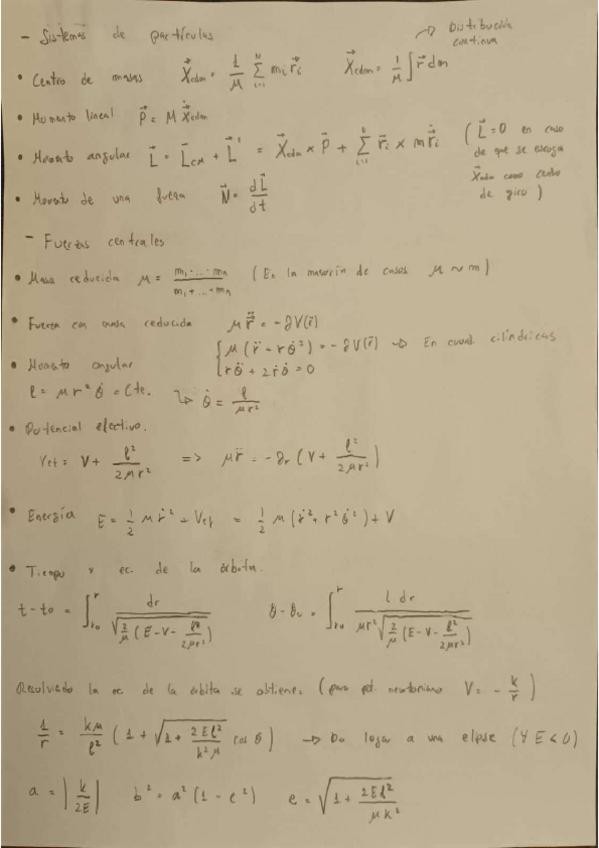 - Sistemas de partículas
• Centro de masas $\vec{X}_{cdm} = \frac{1}{M} \sum_{i=1}^{N} m_i \vec{r}_i$ $\vec{X}_{cdm} = \frac{1}{M} \int \vec{r} dm$ → Distribución continua
• Momento lineal $\vec{P} = M \dot{\vec{X}}_{cdm}$
• Momento angular $\vec{L} = \vec{L}_{CM} + \vec{L}' = \vec{X}_{cdm} \times \vec{P} + \sum_{i=1}^{N} \vec{r}_i \times m \dot{\vec{r}}_i$ ( $\vec{L} = 0$ en caso
de que se escoja
$\vec{X}_{cdm}$ como centro
de giro )
• Momento de una fuerza $\vec{N} = \frac{d\vec{L}}{dt}$
- Fuerzas centrales
• Masa reducida $\mu = \frac{m_1 \cdot ... \cdot m_n}{m_1 + ... + m_n}$ ( En la mayoría de casos $\mu \sim m$ )
• Fuerza con masa reducida $\mu \ddot{\vec{r}} = -\partial V(\vec{r})$
$\begin{cases} \mu (\ddot{r} - r\dot{\theta}^2) = -\partial V(\vec{r}) \\ r\ddot{\theta} + 2\dot{r}\dot{\theta} = 0 \end{cases}$ → En coord. cilíndricas
• Momento angular
$l = \mu r^2 \dot{\theta} = Cte.$ ↳ $\dot{\theta} = \frac{l}{\mu r^2}$
• Potencial efectivo.
$V_{ef} = V + \frac{l^2}{2\mu r^2}$ => $\mu \ddot{r} = -\partial_r ( V + \frac{l^2}{2\mu r^2} )$
• Energía $E = \frac{1}{2} \mu \dot{r}^2 + V_{ef} = \frac{1}{2} \mu (\dot{r}^2 + r^2 \dot{\theta}^2) + V$
• Tiempo y ec. de la órbita.
$t - t_0 = \int_{r_0}^{r} \frac{dr}{\sqrt{\frac{2}{\mu} (E - V - \frac{l^2}{2\mu r^2})}}$ $\theta - \theta_0 = \int_{r_0}^{r} \frac{l \, dr}{\mu r^2 \sqrt{\frac{2}{\mu} (E - V - \frac{l^2}{2\mu r^2})}}$
Resolviendo la ec. de la órbita se obtiene: (para pot. newtoniano $V = -\frac{k}{r}$ )
$\frac{1}{r} = \frac{k\mu}{l^2} ( 1 + \sqrt{1 + \frac{2El^2}{k^2\mu}} \cos\theta )$ → Da lugar a una elipse (∀ E < 0)
$a = \left| \frac{k}{2E} \right|$ $b^2 = a^2 (1 - e^2)$ $e = \sqrt{1 + \frac{2El^2}{\mu k^2}}$